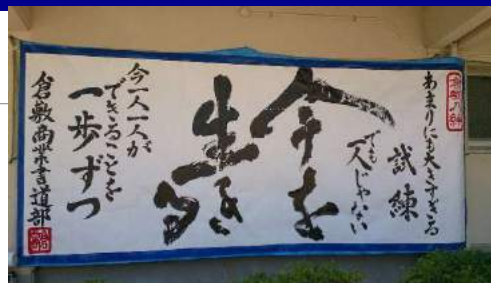 あまりにも大きすぎる
試練
でも
一人じゃない
今を
生きる
今一人一人が
できることを
一歩ずつ
倉敷商業書道部